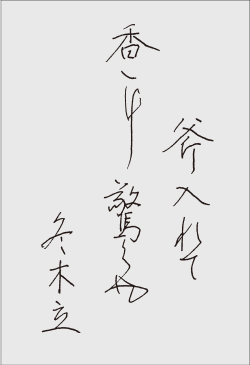 斧入れて
香に驚くや
冬木立